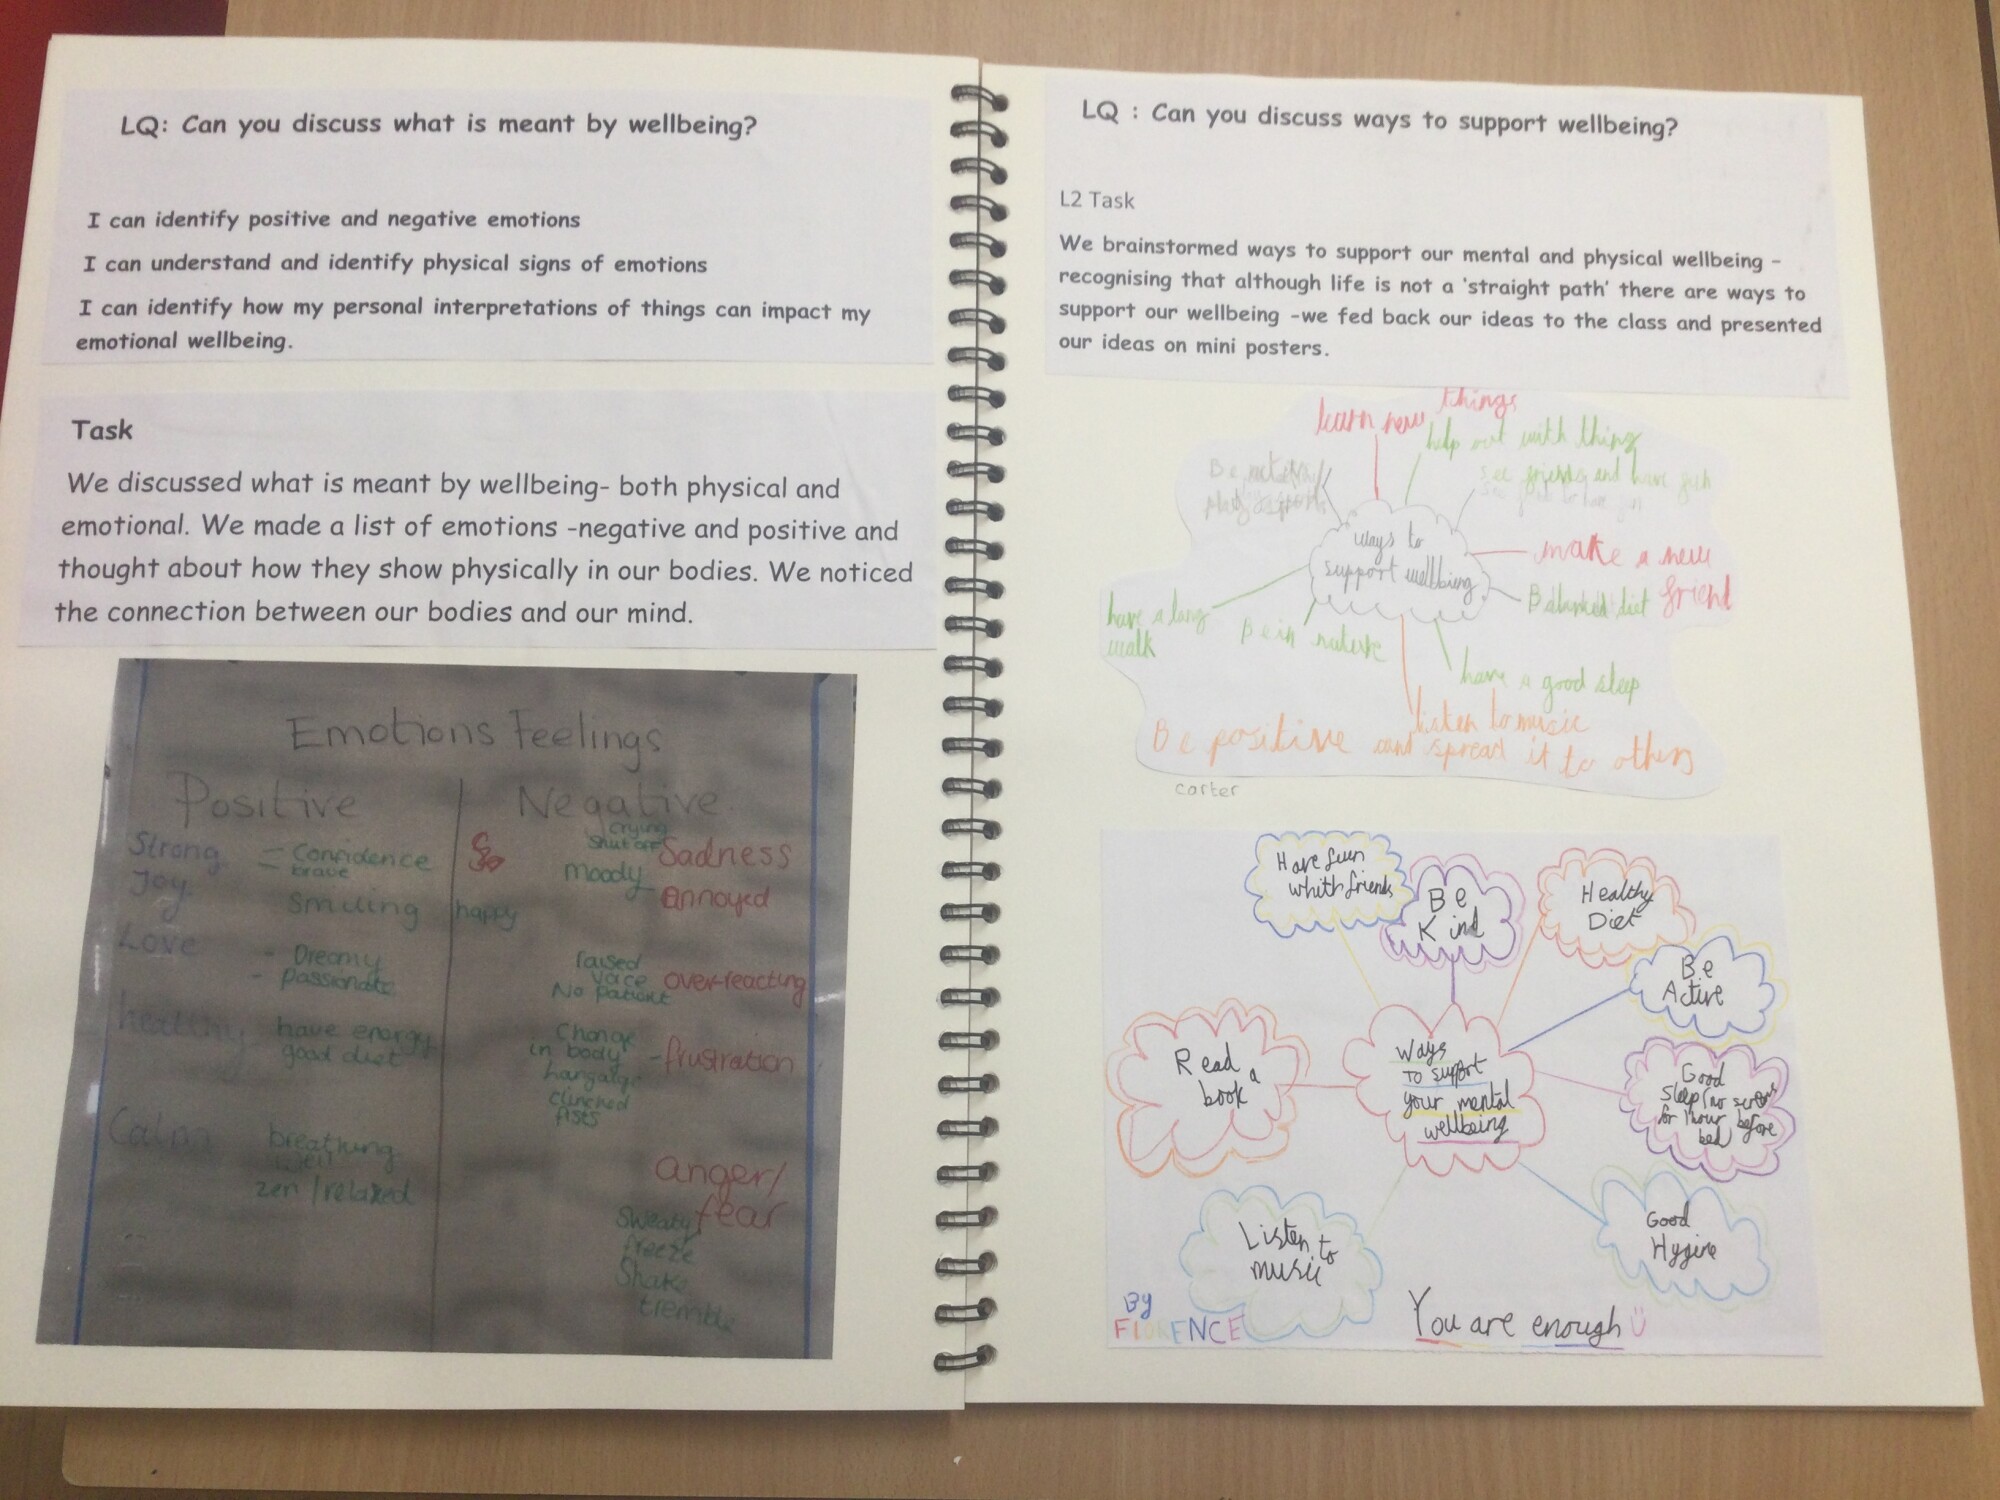 LQ: Can you discuss what is meant by wellbeing?
I can identify positive and negative emotions
I can understand and identify physical signs of emotions
I can identify how my personal interpretations of things can impact my
emotional wellbeing.
Task
We discussed what is meant by wellbeing- both physical and
emotional. We made a list of emotions -negative and positive and
thought about how they show physically in our bodies. We noticed
the connection between our bodies and our mind.
Emotions Feelings
Positive
Strong = Confidence
brave
Joy
smiling happy
Love - Dreamy
- passionate
healthy have energy
good diet
Calm breathing
well
zen / relaxed
Negative
crying
shut off Sadness
moody annoyed
raised
voice over-reacting
No patient
Change
in body - frustration
clinched
fists
anger/
fear
Sweaty
freeze
Shake
tremble
LQ : Can you discuss ways to support wellbeing?
L2 Task
We brainstormed ways to support our mental and physical wellbeing -
recognising that although life is not a 'straight path' there are ways to
support our wellbeing -we fed back our ideas to the class and presented
our ideas on mini posters.
learn new things
help out with thing
see friends and have
ways to
support wellbieng
make a new
friend
Balanced diet
have a long
walk
Be in nature
have a good sleep
listen to music
Be positive and spread it to others
carter
Have fun
whith friends
Be
Kind
Healthy
Diet
Be
Active
Read a
book
Ways
To support
your mental
wellbeing
Good
Sleep/no
for 1 hour before
bed
Listen to
music
Good
Hygine
By
FLORENCE
You are enough